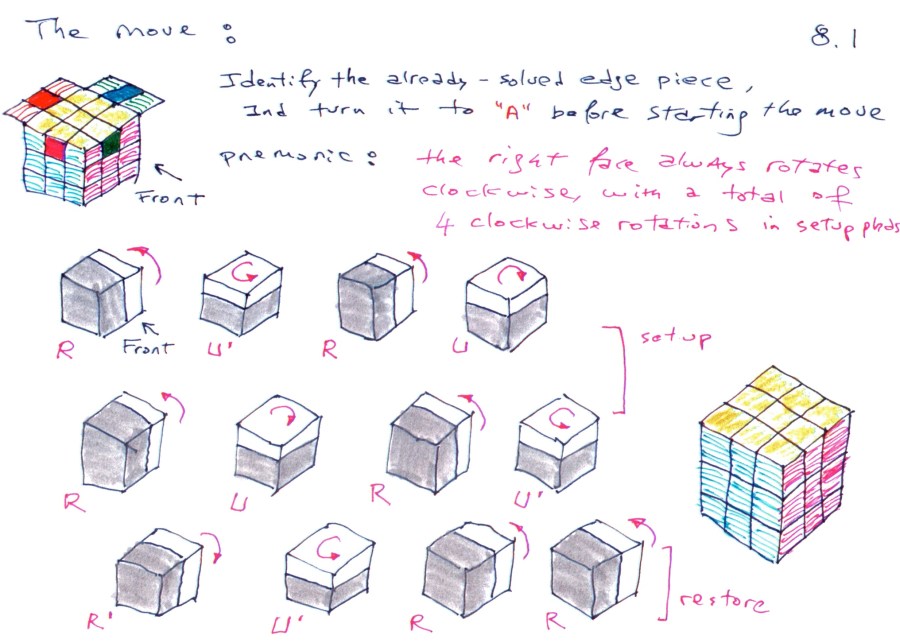 The move :
8.1
Identify the already-solved edge piece,
And turn it to "A" before starting the move
pnemonic : the right face always rotates
clockwise, with a total of
4 clockwise rotations in setup phas
Front
R Front U' R U
setup
R U R U'
R' U' R R
restore